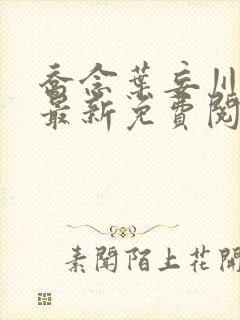 喬念葉妄川
最新免費閱
素聞陌上花開